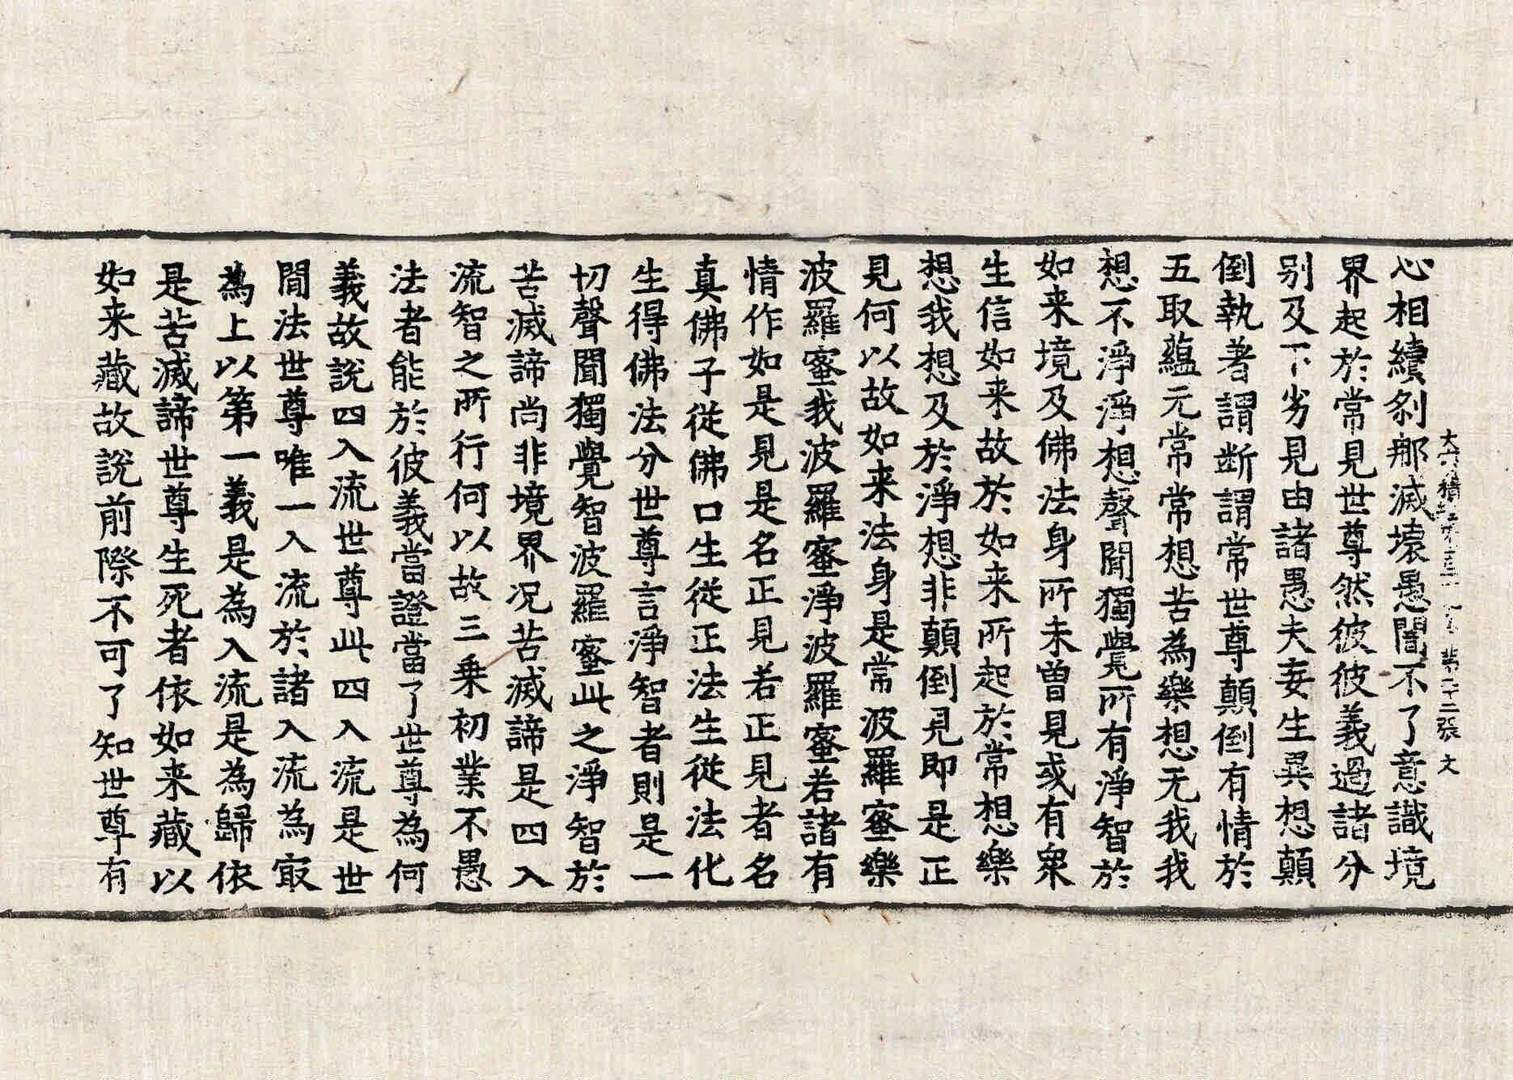 大積經第 第二十二張 文
心相續刹那滅壞愚闇不了意識境
界起於常見世尊然彼彼義過諸分
别及下劣見由諸愚夫妄生異想顛
倒執著謂断謂常世尊顛倒有情於
五取蘊无常常想苦為樂想无我我
想不淨淨想聲聞獨覺所有淨智於
如来境及佛法身所未曽見或有衆
生信如来故於如来所起於常想樂
想我想及於淨想非顛倒見即是正
見何以故如来法身是常波羅蜜樂
波羅蜜我波羅蜜淨波羅蜜若諸有
情作如是見是名正見若正見者名
真佛子從佛口生從正法生從法化
生得佛法分世尊言淨智者則是一
切聲聞獨覺智波羅蜜此之淨智於
苦滅諦尚非境界况苦滅諦是四入
流智之所行何以故三乘初業不愚
法者能於彼義當證當了世尊為何
義故說四入流世尊此四入流是世
間法世尊唯一入流於諸入流為㝡
為上以第一義是為入流是為歸依
是苦滅諦世尊生死者依如来藏以
如来藏故說前際不可了知世尊有